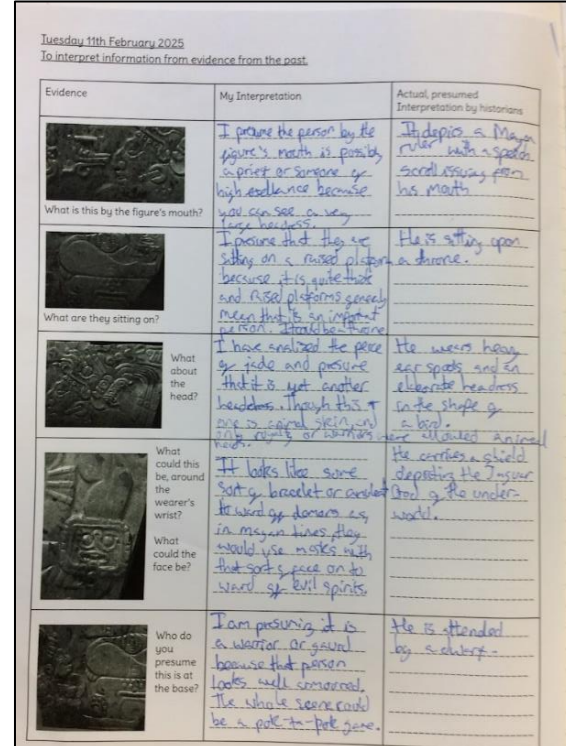 Tuesday 11th February 2025
To interpret information from evidence from the past.
Evidence
My Interpretation
Actual, presumed
Interpretation by historians
What is this by the figure's mouth?
I presume the person by the
figure's mouth is possibly
a priest or someone of
high because
you can see a very
large headress.
It depics a Mayan
ruler with a speech
scroll issuing from
his mouth
What are they sitting on?
I presume that they are
sitting on a raised platform
because it is quite thick
and raised platforms
mean that its an important
person. It could be a throne
He is sitting upon
a throne.
What
about
the
head?
I have analized the peice
of jade and presume
that it is yet another
headdess. Though this
one is animal skin, and
only royalty or warriors were allowed animal
heads.
He wears heavy
ear spools and an
elaborate headress
in the shape of
a bird.
What
could this
be, around
the
wearer's
wrist?
What
could the
face be?
It looks like some
sort of bracelet or
to ward of as,
in mayan times they
would use masks with
that sort of face on to
ward of evil spirits.
He carries a shield
depicting the Jaguar
God of the under-
world.
Who do
you
presume
this is at
the base?
I am presuming it is
a warrior or
because that person
looks well armoured.
The whole scene could
be a pok-ta-pok game.
He is attended
by a dwarf.